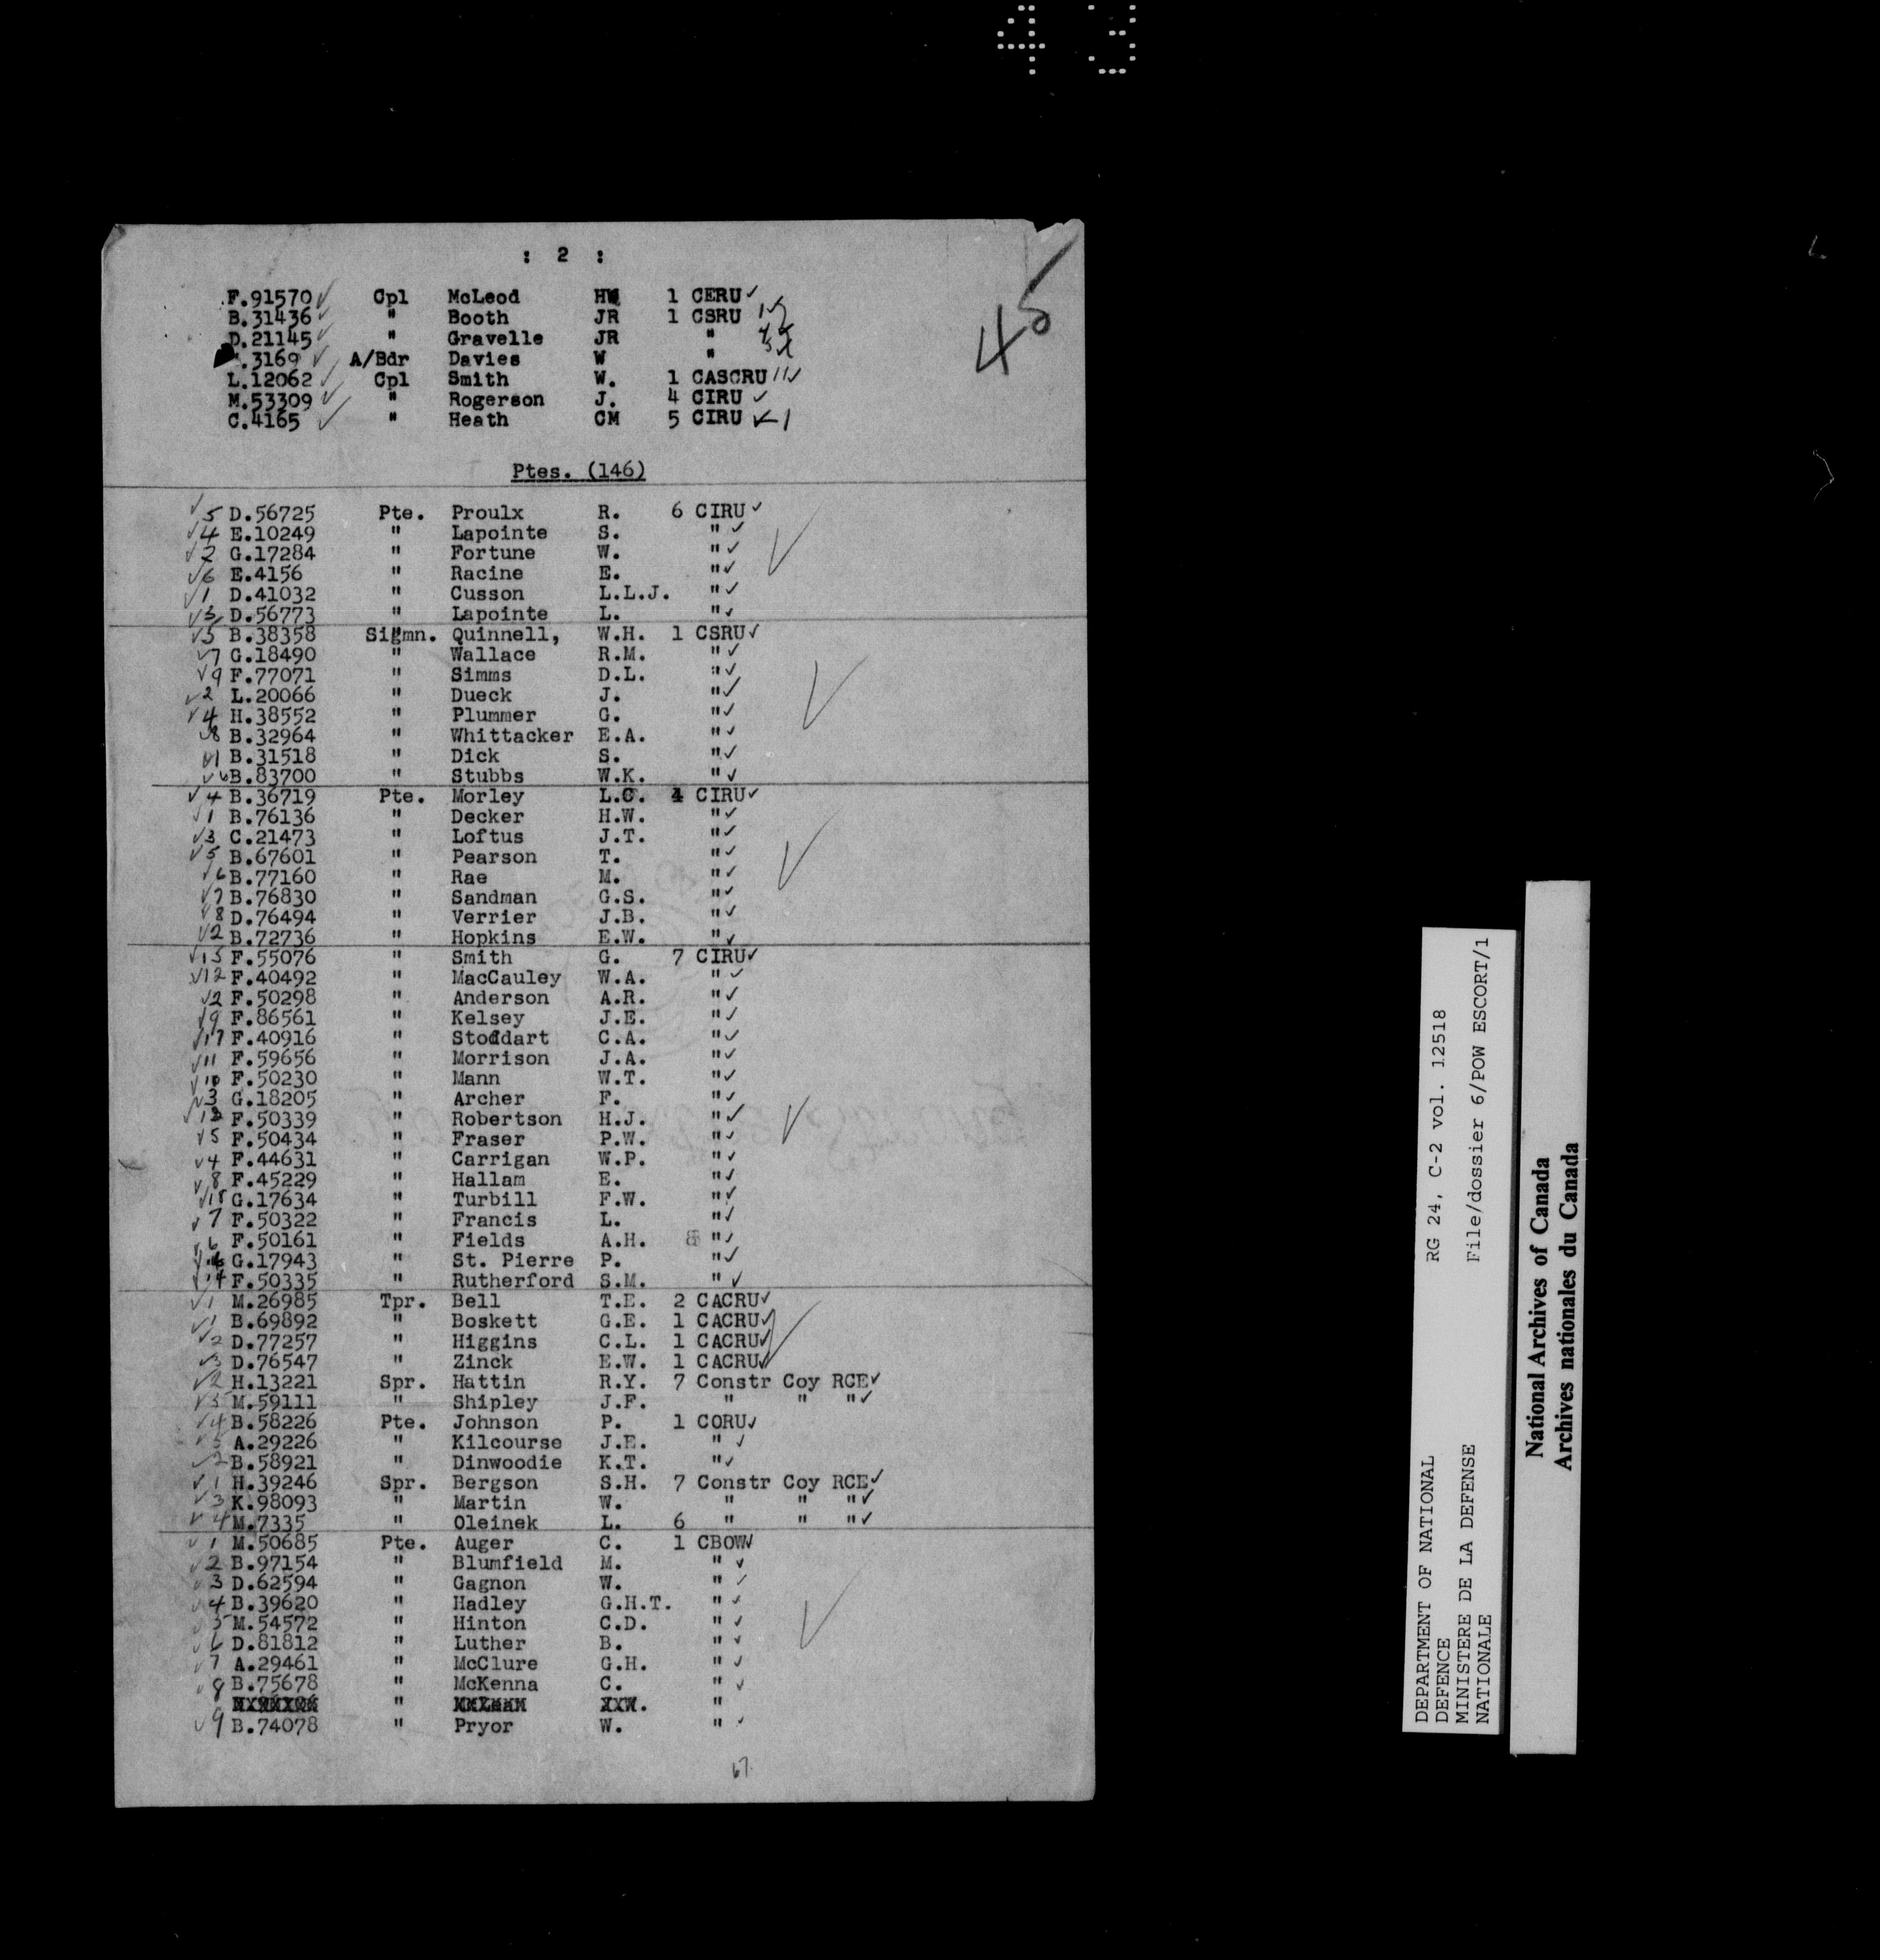 43
: 2 :
45
F.91570 Cpl McLeod HW 1 CERU
B.31436 " Booth JR 1 CSRU
D.21145 " Gravelle JR "
.3169 A/Bdr Davies W "
L.12062 Cpl Smith W. 1 CASCRU 11
M.53309 " Rogerson J. 4 CIRU
C.4165 " Heath CM 5 CIRU 1
Ptes. (146)
5 D.56725 Pte. Proulx R. 6 CIRU
4 E.10249 " Lapointe S. "
2 G.17284 " Fortune W. "
6 E.4156 " Racine E. "
1 D.41032 " Cusson L.L.J. "
3 D.56773 " Lapointe L. "
5 B.38358 Sigmn. Quinnell, W.H. 1 CSRU
7 G.18490 " Wallace R.M. "
9 F.77071 " Simms D.L. "
2 L.20066 " Dueck J. "
4 H.38552 " Plummer G. "
8 B.32964 " Whittacker E.A. "
1 B.31518 " Dick S. "
6 B.83700 " Stubbs W.K. "
4 B.36719 Pte. Morley L.C. 4 CIRU
1 B.76136 " Decker H.W. "
3 C.21473 " Loftus J.T. "
5 B.67601 " Pearson T. "
6 B.77160 " Rae M. "
7 B.76830 " Sandman G.S. "
8 D.76494 " Verrier J.B. "
2 B.72736 " Hopkins E.W. "
15 F.55076 " Smith G. 7 CIRU
12 F.40492 " MacCauley W.A. "
2 F.50298 " Anderson A.R. "
9 F.86561 " Kelsey J.E. "
17 F.40916 " Stoddart C.A. "
11 F.59656 " Morrison J.A. "
10 F.50230 " Mann W.T. "
3 G.18205 " Archer F. "
13 F.50339 " Robertson H.J. "
5 F.50434 " Fraser P.W. "
4 F.44631 " Carrigan W.P. "
8 F.45229 " Hallam E. "
18 G.17634 " Turbill F.W. "
7 F.50322 " Francis L. "
6 F.50161 " Fields A.H. "
16 G.17943 " St. Pierre P. "
14 F.50335 " Rutherford S.M. "
1 M.26985 Tpr. Bell T.E. 2 CACRU
1 B.69892 " Boskett G.E. 1 CACRU
2 D.77257 " Higgins C.L. 1 CACRU
3 D.76547 " Zinck E.W. 1 CACRU
2 H.13221 Spr. Hattin R.Y. 7 Constr Coy RCE
5 M.59111 " Shipley J.F. " " "
4 B.58226 Pte. Johnson P. 1 CORU
5 A.29226 " Kilcourse J.E. "
2 B.58921 " Dinwoodie K.T. "
1 H.39246 Spr. Bergson S.H. 7 Constr Coy RCE
3 K.98093 " Martin W. " " "
4 M.7335 " Oleinek L. 6 " " "
1 M.50685 Pte. Auger C. 1 CBOW
2 B.97154 " Blumfield M. "
3 D.62594 " Gagnon W. "
4 B.39620 " Hadley G.H.T. "
5 M.54572 " Hinton C.D. "
6 D.81812 " Luther B. "
7 A.29461 " McClure G.H. "
8 B.75678 " McKenna C. "
" "
9 B.74078 " Pryor W. "
67
DEPARTMENT OF NATIONAL RG 24, C-2 vol. 12518
DEFENCE
MINISTERE DE LA DEFENSE File/dossier 6/POW ESCORT/1
NATIONALE
National Archives of Canada
Archives nationales du Canada